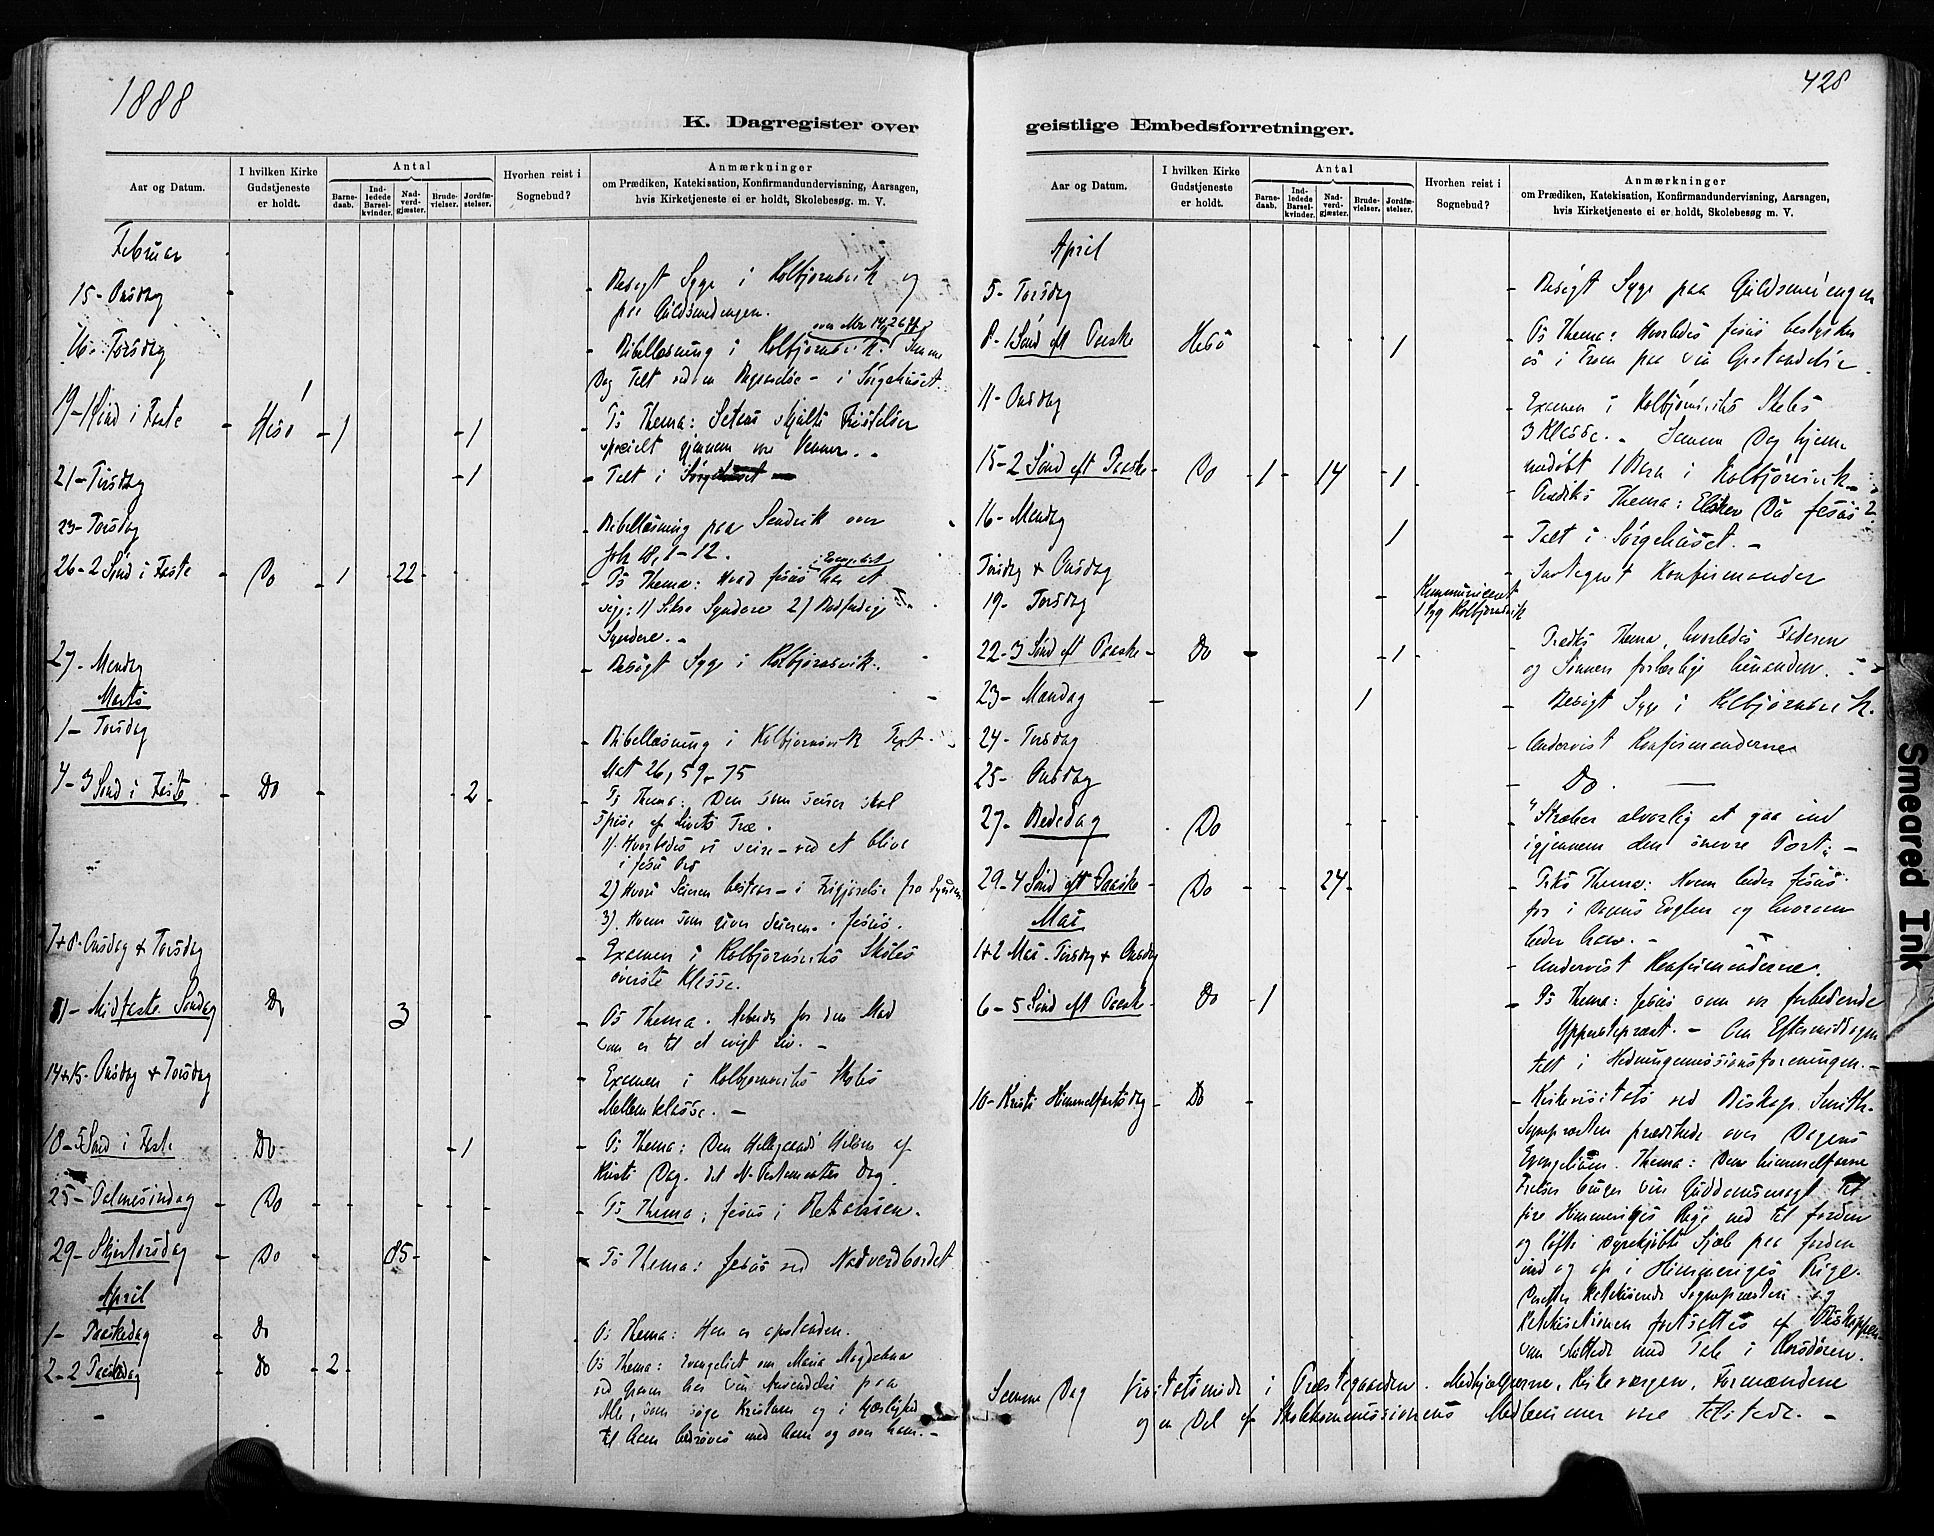 1888
428
K. Dagregister over
geistlige Embedsforretninger.
Aar og Datum.
I hvilken Kirke Gudstjeneste er holdt.
Antal
Barnedaab.
Indledede Barselkvinder.
Nadverdgjæster.
Brudevielser.
Jordfæstelser.
Hvorhen reist i Sognebud?
Anmærkninger
om Prædiken, Katekisation, Konfirmandundervisning, Aarsagen,
hvis Kirketjeneste ei er holdt, Skolebesøg. m. V.
Februar
15- Onsdag - Besøgt Syge i Kolbjørnsvik og
paa Guldsmedengen.
16- Torsdag - Bibellæsning i Kolbjørnsvik. Samme
Dag Talt ved en Begravelse - i Sørgehuset.
19- 1 Sønd i Faste - Hisø - 1 - 1 Ps Thema: Satans skjulte Fristelser
specielt gjennem vore Venner. -
21- Tirsdag - 1 - Talt i Sørgehuset -
23- Torsdag - Bibellæsning paa Sandvik over
Joh 18, 1-12.
26- 2 Sønd i Faste - Do - 1 - 22 - Ps Thema: Hvad Jesus har at
sige: 1) Syndere 2) Bodfærdige
Syndere. -
27- Mandag - Besøgt Syge i Kolbjørnsvik.
Marts
1- Torsdag - Bibellæsning i Kolbjørnsvik Text
Mat 26, 59-75
4- 3 Sønd i Faste - Do - 2 - Ps Thema: Den som seirer skal
Spise af Livets Træ.
1) Hvorledes vi seire - ved at blive
i Jesu Ord
2) Hvori Seieren bestaar - i Frigjørelse fra Synden
3). Hvem som giver Seieren. Jesus.
7+8- Onsdag + Torsdag - Examen i Kolbjørnsviks Skoles
øverste Klasse.
11- Midfaste Søndag Do 3 - Ps Thema. Arbeider for den Mad
som er til et evigt Liv. -
14+15- Onsdag + Torsdag - Examen i Kolbjørnsviks Skoles
Mellemklasse. -
18- 5 Sønd i Faste Do - 1 - Ps Thema: Den Helligaands Hilsen af
Kristi Dag. det N. Testamentes Dag.
25- Palmesøndag - Do - Ps Thema: Jesus i Betanien.
29- Skjertorsdag - Do - 85 - Ps Thema: Jesus ved Nadverdbordet
April
1- Paaskedag - Do Ps Thema: Han er opstanden.
2- 2 Paaskedag - Do - 2 - Ps Thema: Evangeliet om Maria Magdalena
Alle, som søge Kristum og i Kjærlighed
til ham bedrøves med ham og over ham. -
Aar og Datum.
I hvilken Kirke Gudstjeneste er holdt.
Antal
Barnedaab.
Indledede Barselkvinder.
Nadverdgjæster.
Brudevielser.
Jordfæstelser.
Hvorhen reist i Sognebud?
Anmærkninger
om Prædiken, Katekisation, Konfirmandundervisning, Aarsagen,
hvis Kirketjeneste ei er holdt, Skolebesøg m. V.
April
5- Torsdag - Besøgt Syge paa Guldsmedengen
8- 1 Sønd eft Paaske Hisø - 1 - Ps Thema: Hvorledes Jesus bestyrker
os i Troen paa sin Opstandelse.
11- Onsdag Examen i Kolbjørnsviks Skoles
3 Klasse. - Samme Dag hjemmedøbt 1 Barn i Kolbjørnsvik -
15- 2 Sønd eft Paaske - Do - 1 - 14 - 1 Prædiks Thema: Elsker Du Jesus?
16- Mandag 1 - Talt i Sørgehuset. -
Tirsdag + Onsdag Konfirmander
19- Torsdag - Kommuniceret
1 Syg Kolbjørnsvik
22- 3 Sønd eft Paaske - Do - 1 - Prædks Thema, hvorledes Faderen
og Sønnen forherlige hinanden.
23- Mandag - 1 - Besøgt Syge i Kolbjørnsvik.
24- Tirsdag - Undervist Konfirmanderne
25- Onsdag - Do. -
27- Bededag Do - "Stræber alvorlig at gaa ind
igjennem den snevre Port" -
29- 4 Sønd eft Paaske - Do - 24 - Prks Thema: Hvem beder Jesus
for i Dagens Evglm og hvorom
beder han. -
Mai
1+2 Mai. Tirsdag + Onsdag - Undervist Konfirmanderne.
6- 5 Sønd eft Paaske - Do - 1 - Ps Thema: Jesus som os forbedende
Ypperstepræst. - Om Eftermiddagen
talt i Hedningemissionsforeningen. -
10- Kristi Himmelfartsdag - Do - Kirkevisitats ved Biskop Smith.
Sognepræsten prædikede over Dagens
Evangelium. Thema: Den himmelfarne
Frelser bruger sin Guddomsmagt til
føre Himmeriges Rige ned til Jorden
og løfte dyrekjøbte Sjæle paa Jorden
ind og op i Himmeriges Rige.
Derefter Katekiserede Sognepræsten og
Katekisationen fortsattes af Biskoppen
som sluttede med Tale i Korsdøren.
Samme Dag Visitatsmøde i Præstegaarden. Medhjælperne, Kirkeværgen, Formændene
og en Del af Skolekommissionens Medlemmer vare tilstede. -
Smeared Ink